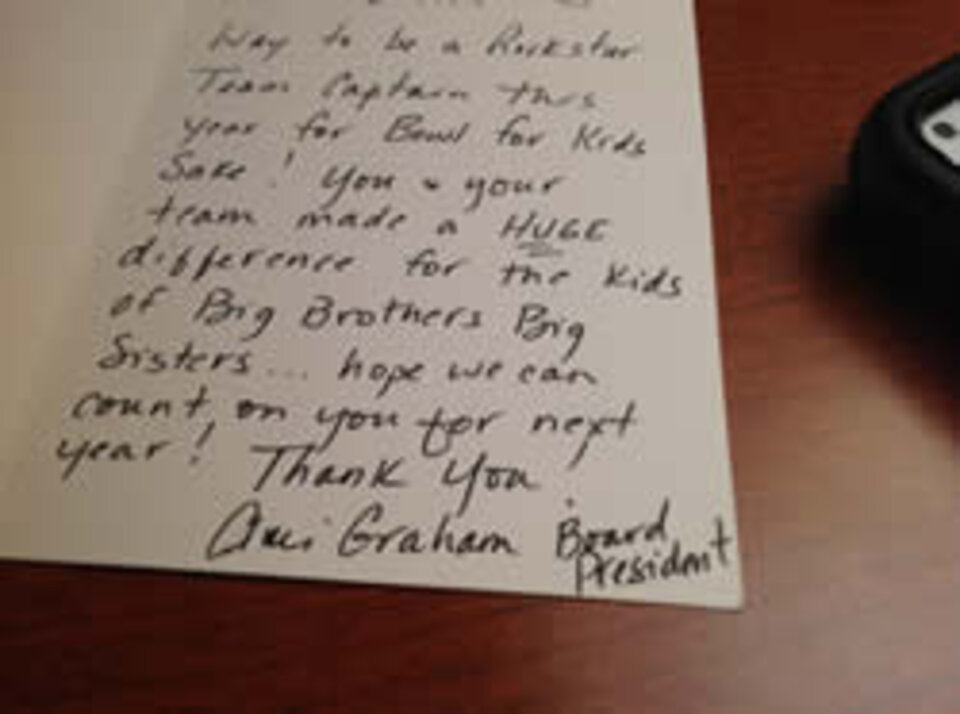 Way to be a Rockstar
Team Captain this
year for Bowl for Kids
Sake! You & your
team made a HUGE
difference for the Kids
of Big Brothers Big
Sisters... hope we can
count on you for next
year! Thank You!
Graham Board
President